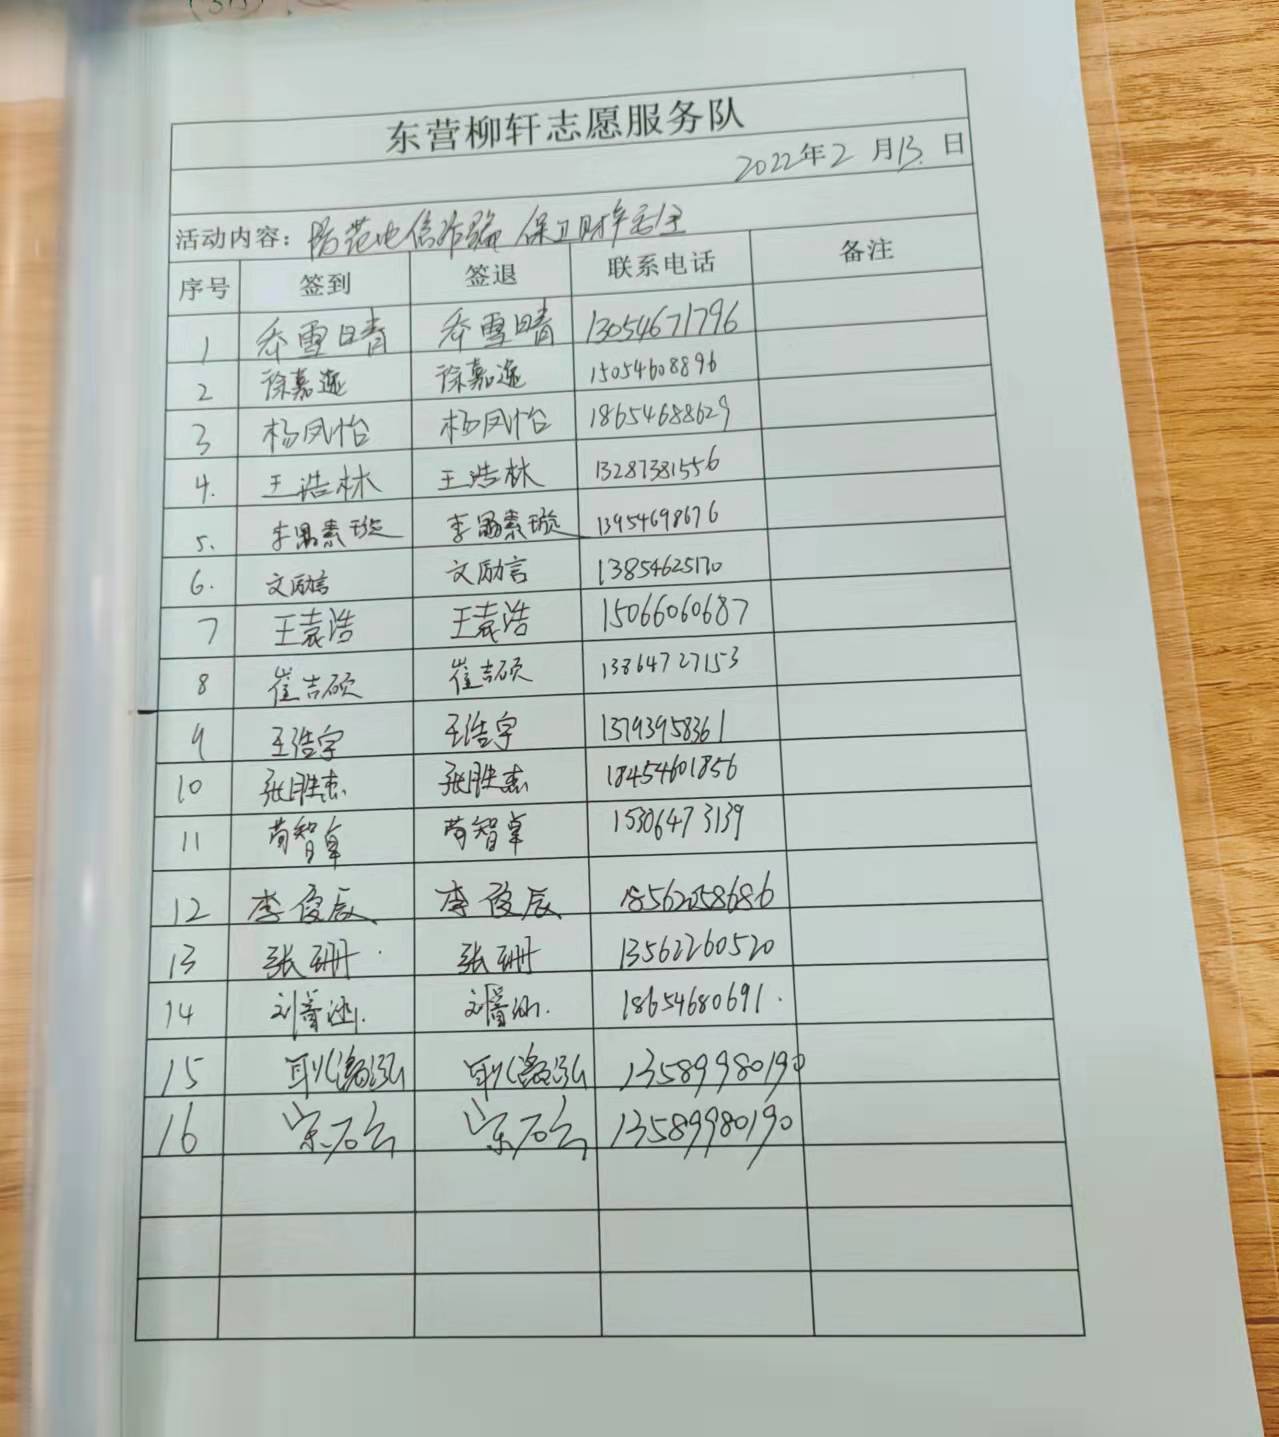 东营柳轩志愿服务队
2022年2月13.日
活动内容：防范电信诈骗 保卫财产安全
序号 签到 签退 联系电话 备注
1 乔雪晴 乔雪晴 13054671796
2 徐嘉逸 徐嘉逸 15054608896
3 杨凤怡 杨凤怡 18654688629
4. 王浩林 王浩林 13287381556
5. 李 素璇 李 素璇 13954698676
6. 文励言 文励言 13854625170
7 王袁浩 王袁浩 15066060687
8 崔吉硕 崔吉硕 13864727153
9 王浩宇 王浩宇 13793958361
10 张胜杰 张胜杰 18454601856
11 苟智卓 苟智卓 15306473139
12 李俊辰 李俊辰 18562058686
13 张珊 张珊 13562260520
14 刘 涵. 刘 涵. 18654680691.
15 耿 泓 耿 泓 13589980190
16 宋石云 宋石云 13589980190